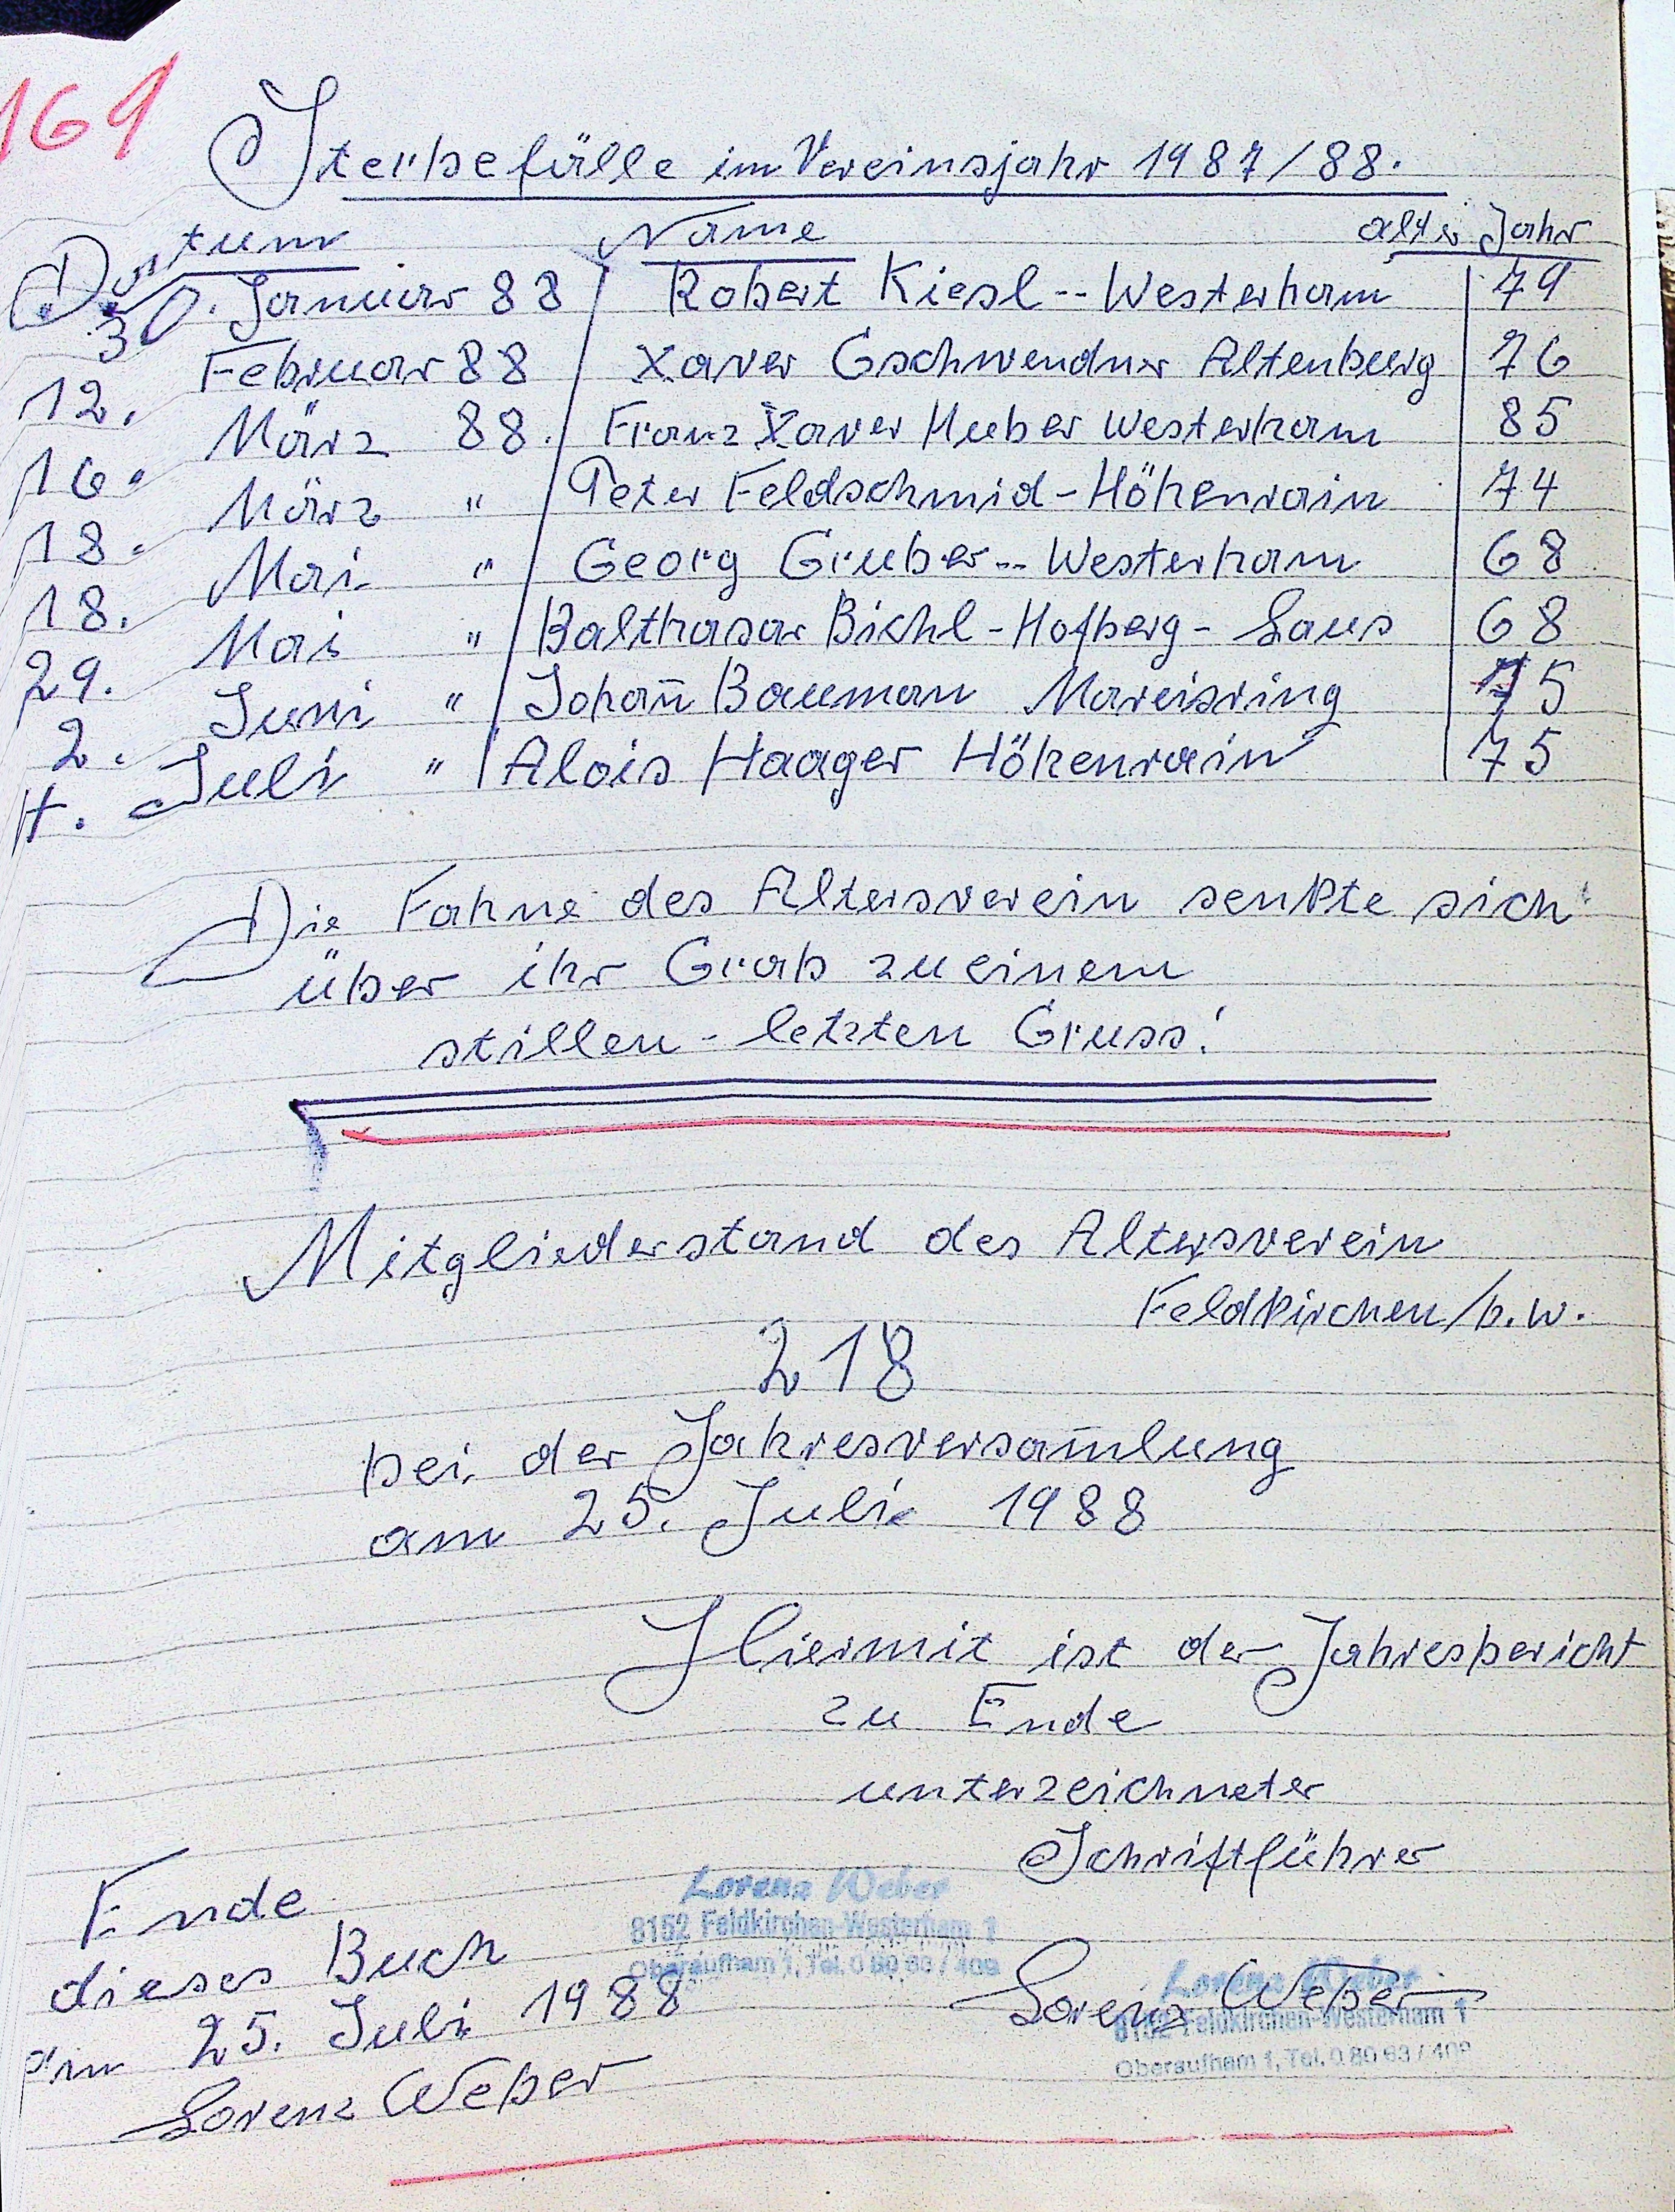 169
Sterbefälle im Vereinsjahr 1987/88.
Datum Name alter Jahr
30. Januar 88 Robert Kiesl -- Westerham 79
12. Februar 88 Xaver Gschwendner Altenburg 76
16. März 88. Franz Xaver Huber Westerham 85
18. März " Peter Feldschmid - Höhenrain 74
18. Mai " Georg Gruber -- Westerham 68
29. Mai " Balthasar Bichl - Hofberg - Laus 68
2. Juni " Johan̄ Bauman Mareisring 75
4. Juli " Alois Haager Höhenrain 75
Die Fahne des Altersverein senkte sich
über ihr Grab zu einem
stillen - letzten Gruss!
Mitgliederstand des Altersverein
Feldkirchen/b.W.
218
bei der Jahresversam̄lung
am 25. Juli 1988
Hiermit ist der Jahresbericht
zu Ende
unterzeichneter
Schriftführer
Lorenz Weber
8152 Feldkirchen-Westerham 1
Oberaufham 1, Tel. 0 80 63 / 409
Lorenz Weber
Lorenz Weber
8152 Feldkirchen-Westerham 1
Oberaufham 1, Tel. 0 80 63 / 409
Ende
dieses Buch
am 25. Juli 1988
Lorenz Weber